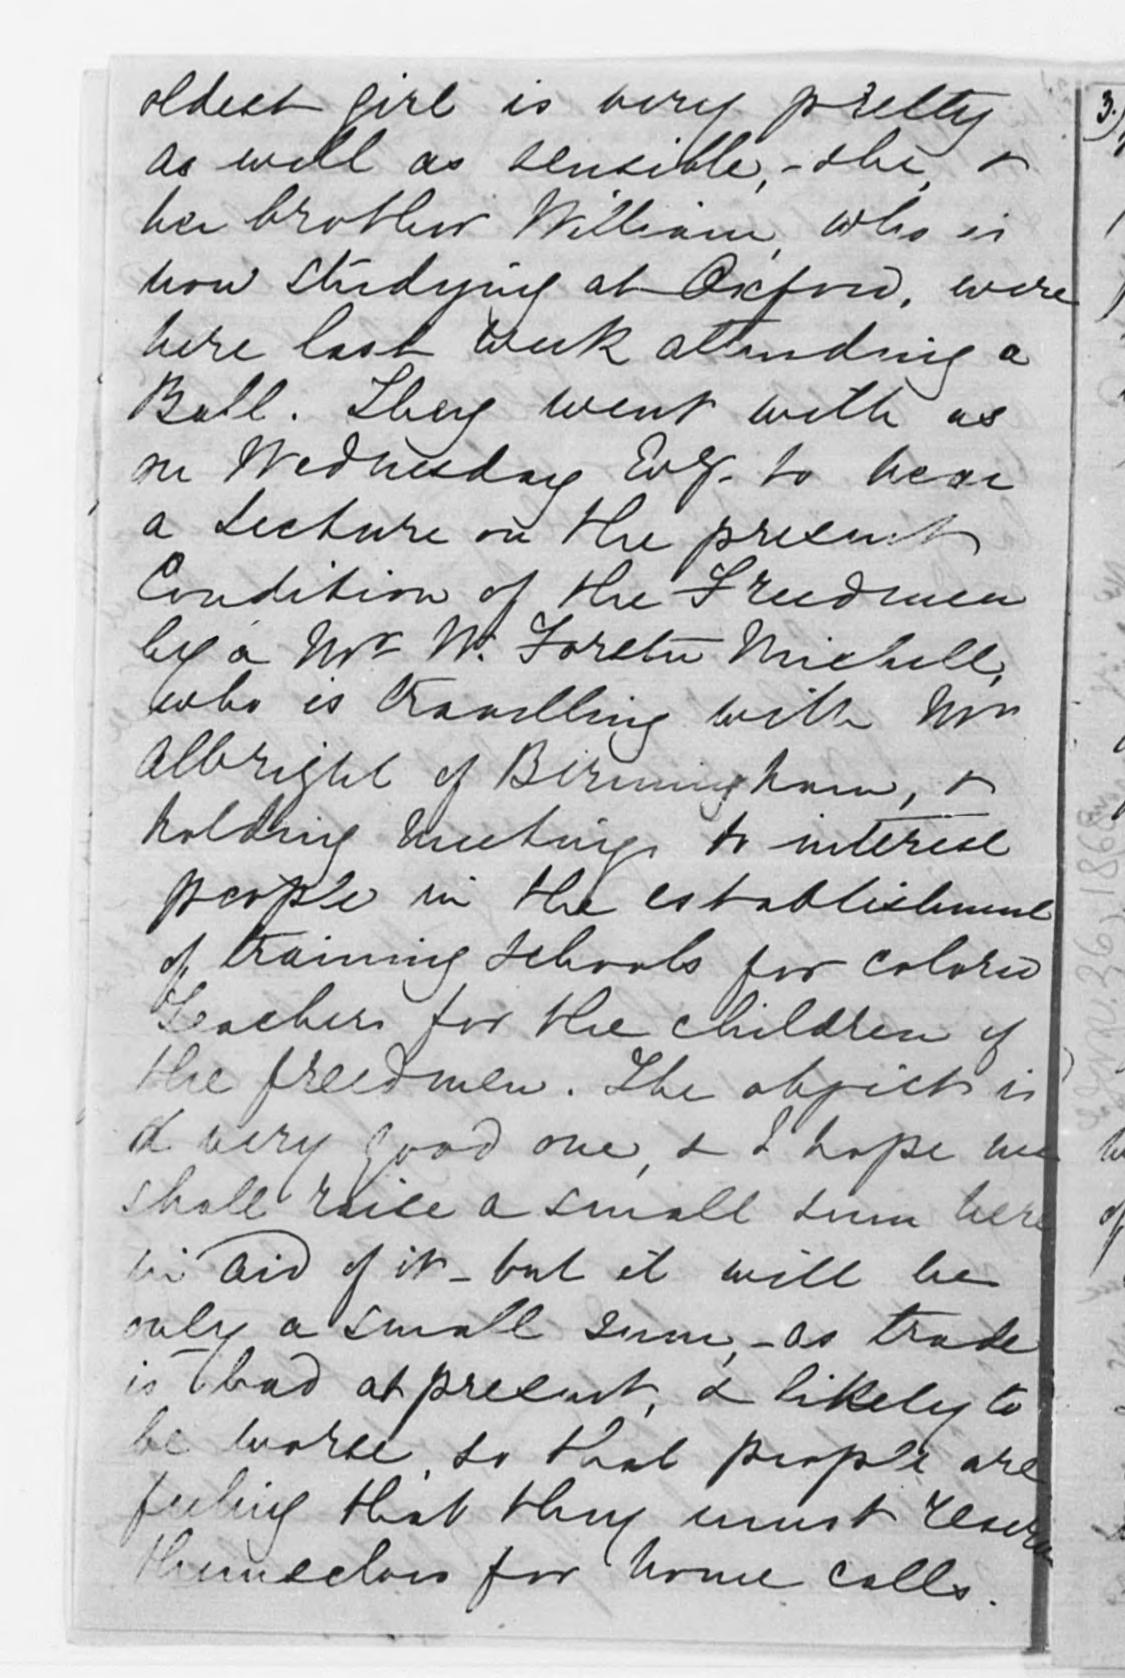 oldest girl is very pretty
as well as sensible, - she, &
her brother William, who is
now studying at Oxford, were
here last week attending a
Ball. They went with us
on Wednesday Evg. to hear
a Lecture on the present
Condition of the Freedmen
by a Mr W. Forster Mitchell,
who is travelling with Mr
Albright of Birmingham, &
holding meetings to interest
people in the establishment
of training schools for colored
Teachers for the children of
the freedmen. The object is
a very good one, & I hope we
shall raise a small sum here
in aid of it - but it will be
only a small sum, - as trade
is bad at present, & likely to
be worse, so that people are
feeling that they must reserve
themselves for home calls.
3.)